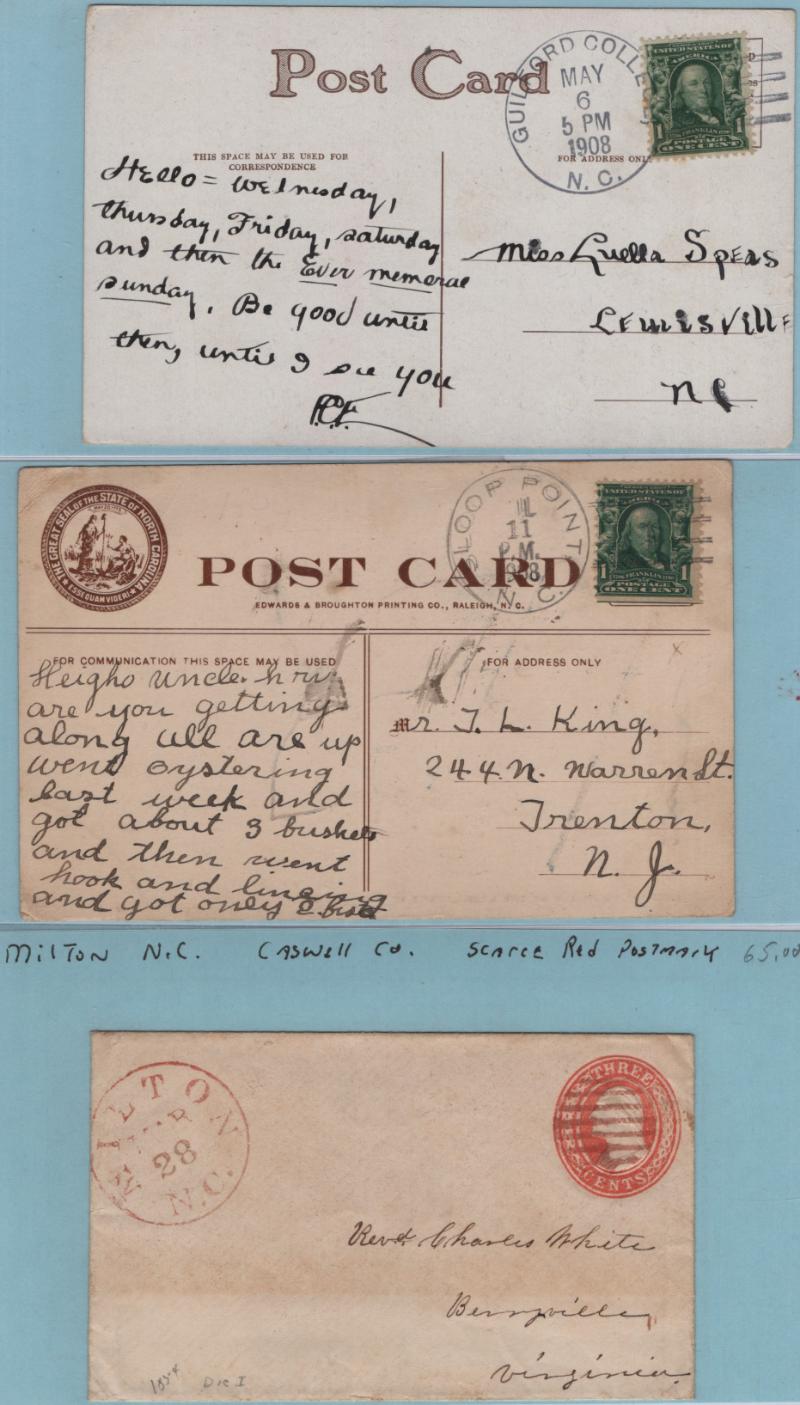 Post Card
GUILFORD COLLEGE
MAY
6
5 PM
1908
N.C.
UNITED STATES OF
AMERICA
1 FRANKLIN 1
POSTAGE
ONE CENT
THIS SPACE MAY BE USED FOR
CORRESPONDENCE
FOR ADDRESS ONLY
Hello = Wednesday,
thursday, Friday, saturday
and then the Ever memoral
sunday. Be good until
then, until I see you
Miss Luella Speas
Lewisville
NC
THE GREAT SEAL OF THE STATE OF NORTH CAROLINA
ESSE QUAM VIDERI
POST CARD
EDWARDS & BROUGHTON PRINTING CO., RALEIGH, N. C.
SLOOP POINT
11
P.M.
N.C.
UNITED STATES OF
AMERICA
1 FRANKLIN 1
POSTAGE
ONE CENT
FOR COMMUNICATION THIS SPACE MAY BE USED
FOR ADDRESS ONLY
Heigho Uncle. how
are you getting
along all are up
went oystering
last week and
got about 3 bushels
and then went
hook and lineing
and got only
Mr. T. L. King,
244 N. Warren St.
Trenton,
N. J.
Milton N.C. Caswell Co. Scarce Red Postmark 65.00
MILTON
28
N.C.
THREE
CENTS
Revd. Charles White
Berryville
Virginia
Die I